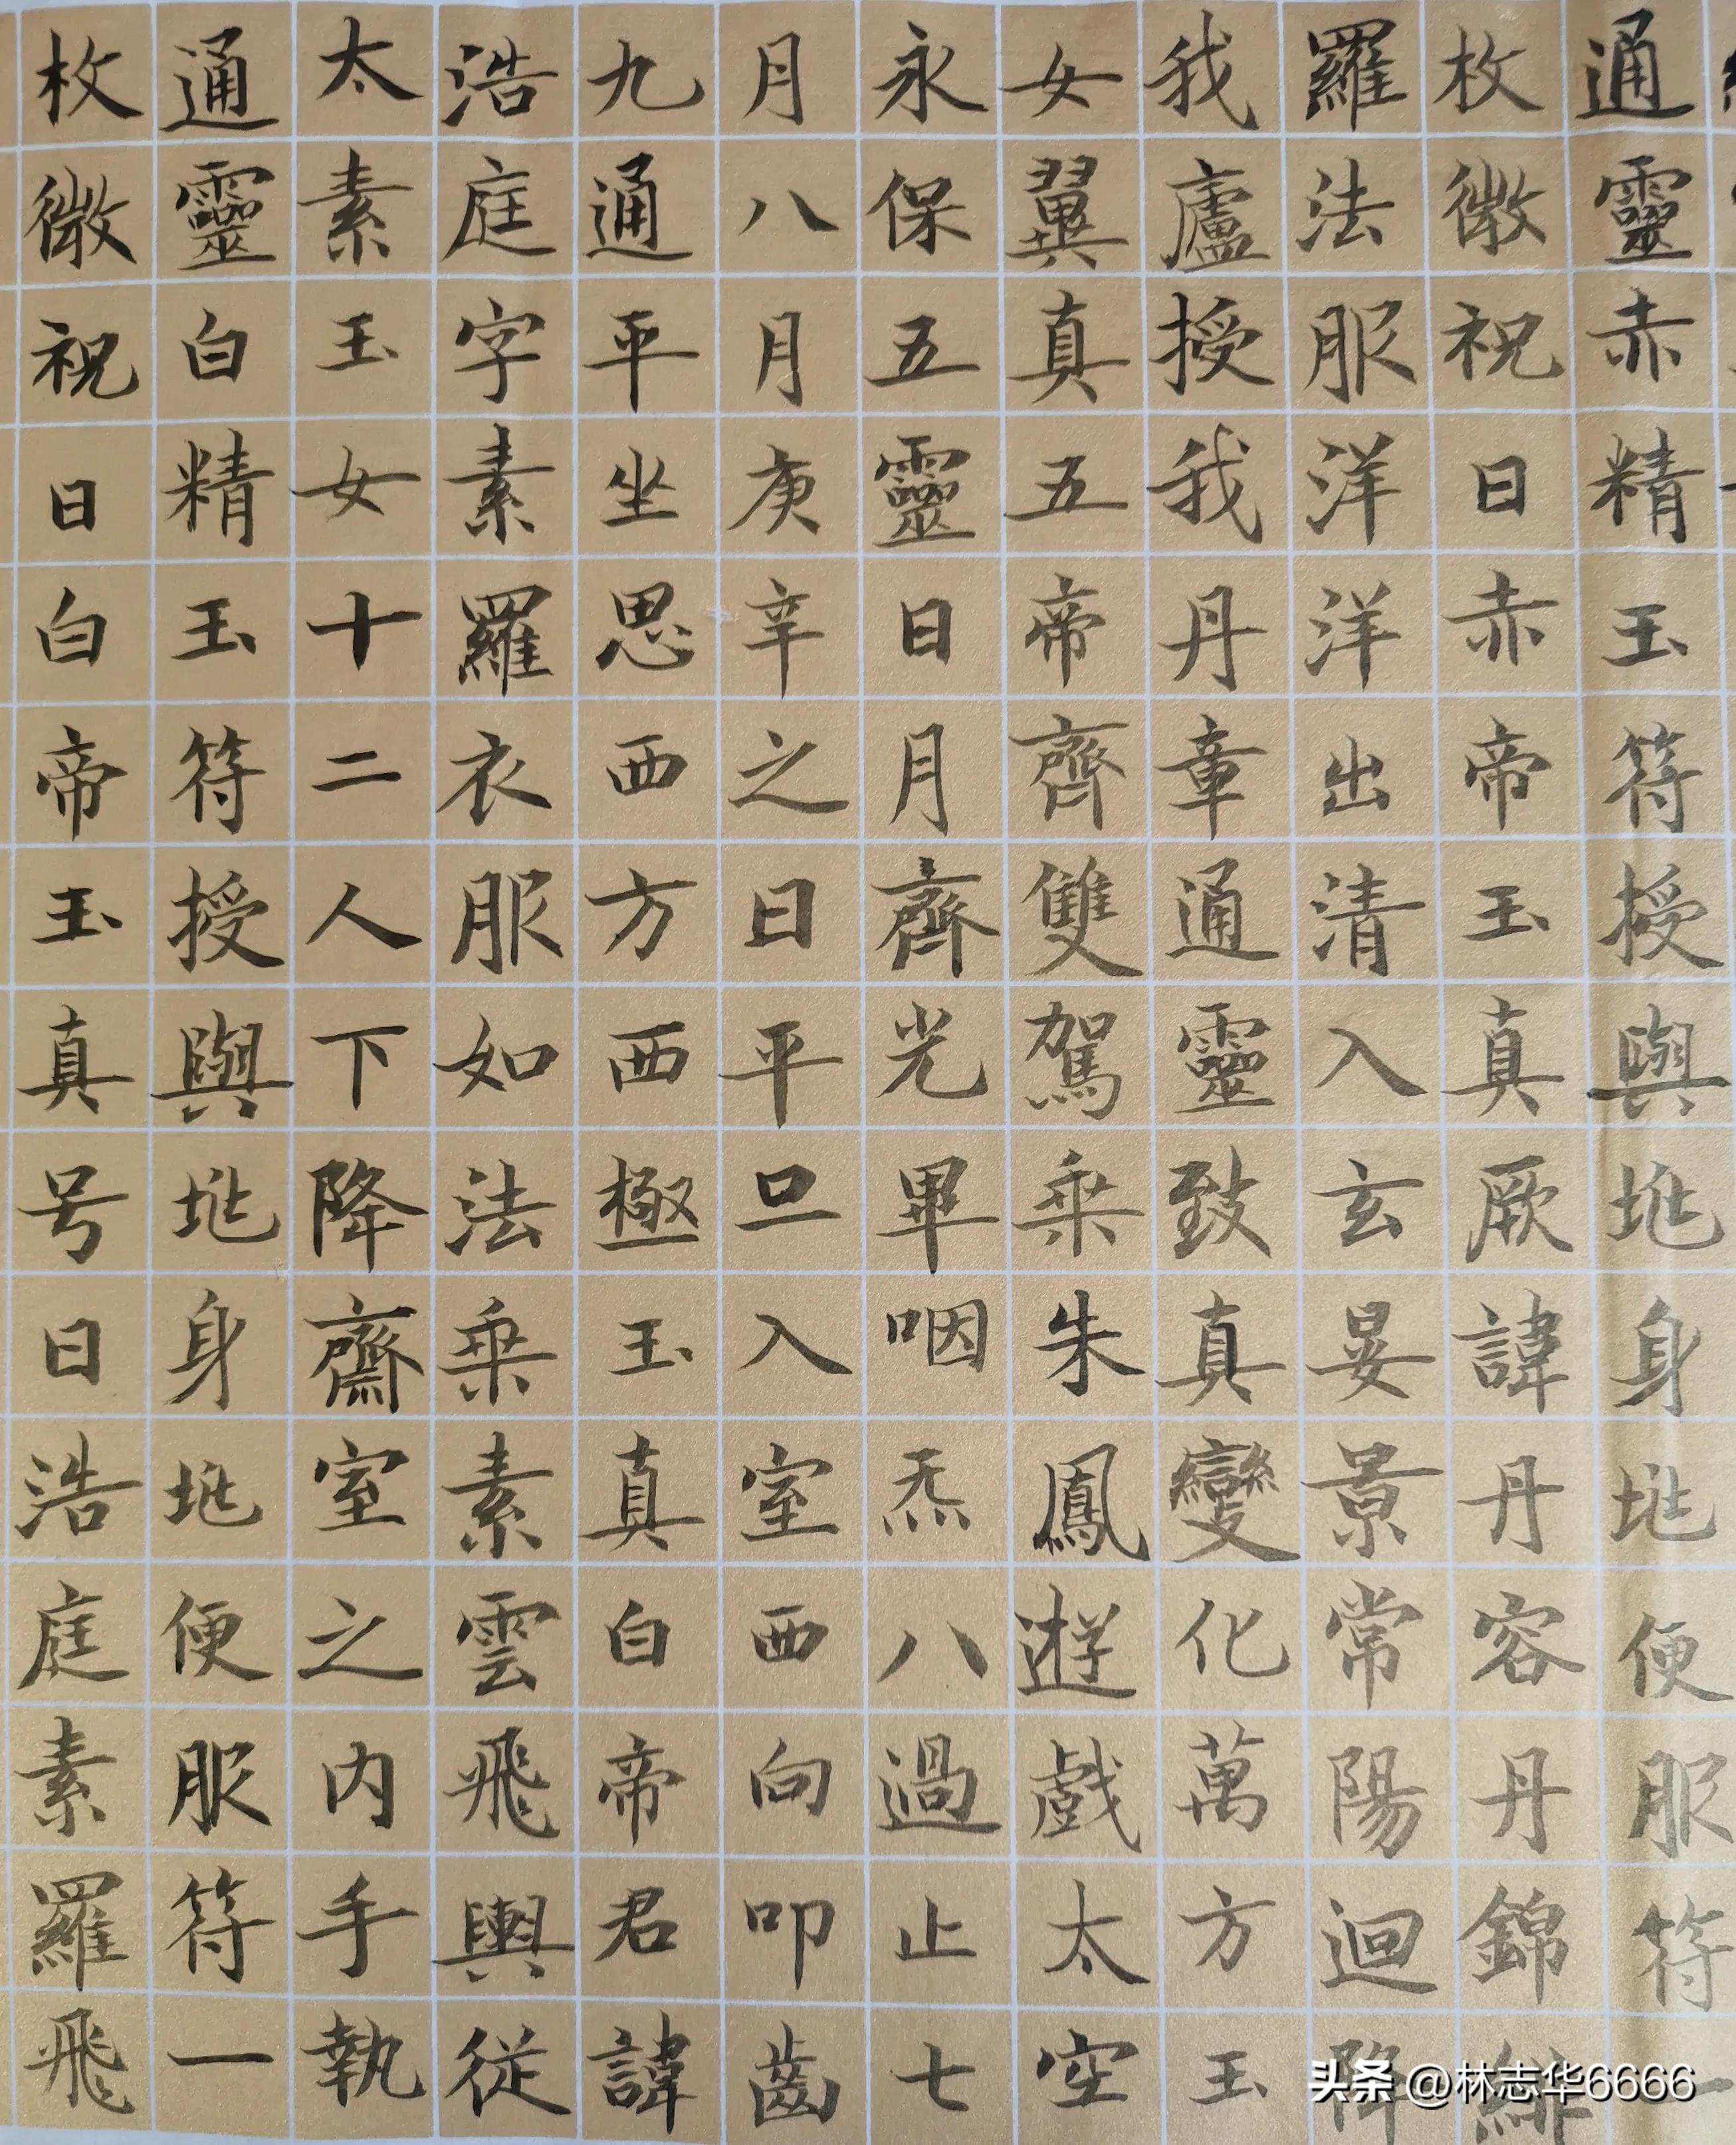 通靈赤精玉符授與垗身垗便服符一
枚微祝曰赤帝玉真厥諱丹容丹錦緋
羅法服洋洋出清入玄晏景常陽迴降
我廬授我丹章通靈致真變化萬方玉
女翼真五帝齊雙駕乘朱鳳遊戲太空
永保五靈日月齊光畢咽炁八過止七
月八月庚辛之日平旦入室西向叩齒
九通平坐思西方西極玉真白帝君諱
浩庭字素羅衣服如法乘素雲飛輿從
太素玉女十二人下降齋室之内手執
通靈白精玉符授與垗身垗便服符一
枚微祝曰白帝玉真号曰浩庭素羅飛
头条 @林志华6666